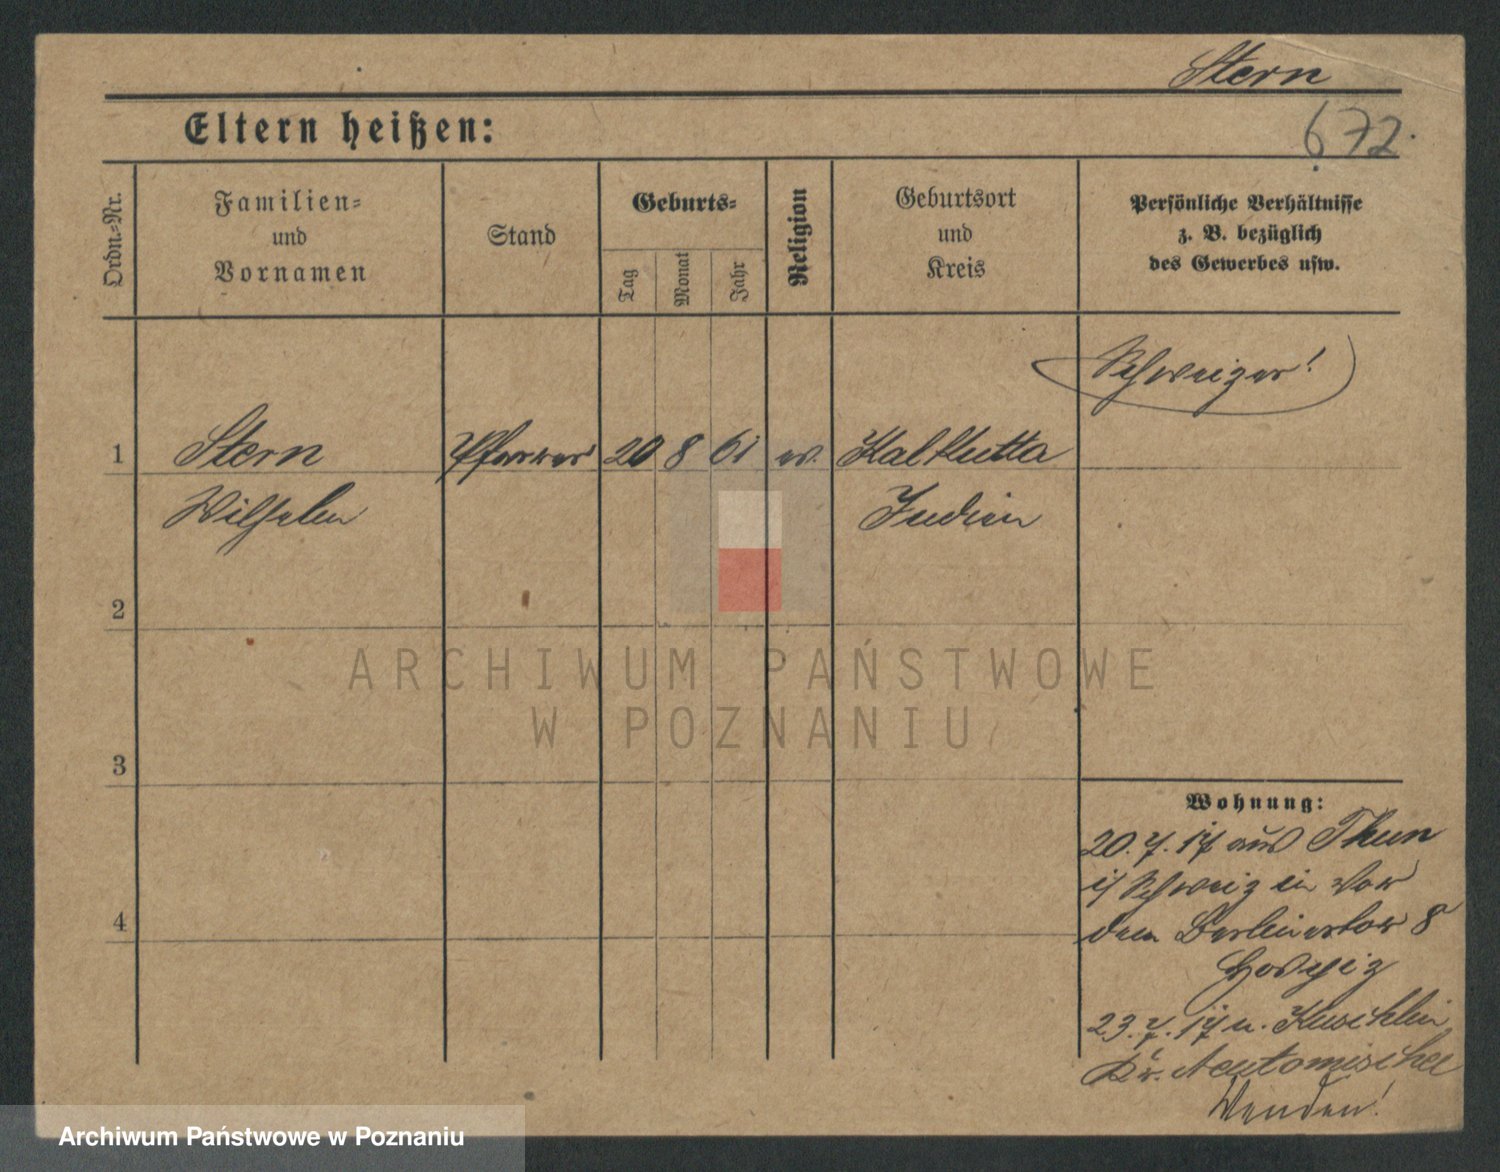 Stern
Eltern heißen:
672.
Ordn.-Nr.
Familien-
und
Vornamen
Stand
Geburts-
Tag
Monat
Jahr
Religion
Geburtsort
und
Kreis
Persönliche Verhältnisse
z. B. bezüglich
des Gewerbes usw.
Schweizer!
1 Stern Pfarrer 20 8 61 ev. Kalkutta
Wilhelm Indien
2
ARCHIWUM PAŃSTWOWE
W POZNANIU
3
Wohnung:
20.7.17 aus Thun
i/Schweiz in Vor
dem Berlinertor 8
23.7.17 n. Kuschlin
Kr. Neutomischel
4
Wenden!
Archiwum Państwowe w Poznaniu